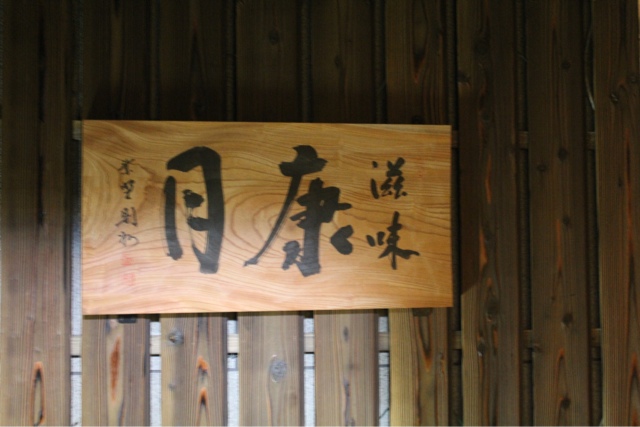 滋味
康月